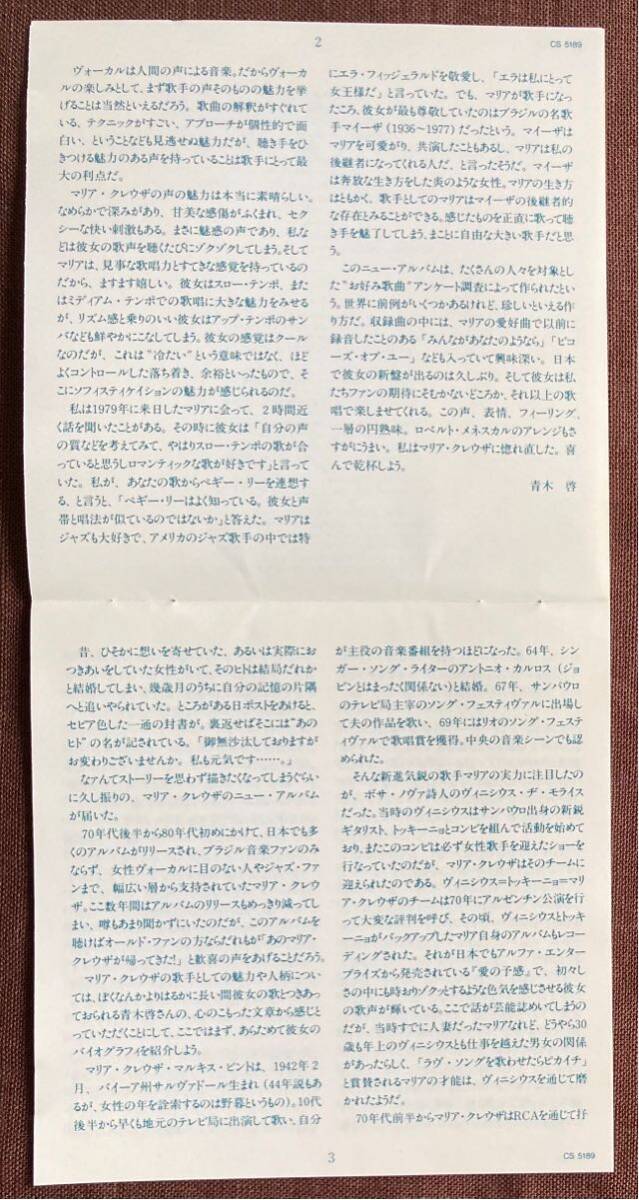 2
CS 5189
ヴォーカルは人間の声による音楽。だからヴォーカ
ルの楽しみとして、まず歌手の声そのものの魅力を挙
げることは当然といえるだろう。歌曲の解釈がすぐれて
いる、テクニックがすごい、アプローチが個性的で面
白い、ということなども見逃せぬ魅力だが、聴き手をひ
きつける魅力のある声を持っていることは歌手にとって最
大の利点だ。
マリア・クレウザの声の魅力は本当に素晴らしい。
なめらかで深みがあり、甘美な感傷がふくまれ、セク
シーな快い刺激もある。まさに魅惑の声であり、私な
どは彼女の歌声を聴くたびにゾクゾクしてしまう。そして
マリアは、見事な歌唱力とすてきな感覚を持っているの
だから、ますます嬉しい。彼女はスロー・テンポ、また
はミディアム・テンポでの歌唱に大きな魅力をみせる
が、リズム感と乗りのいい彼女はアップ・テンポのサン
バなども鮮やかにこなしてしまう。彼女の感覚はクール
なのだが、これは“冷たい”という意味ではなく、ほど
よくコントロールした落ち着き、余裕といったもので、そ
こにソフィスティケイションの魅力が感じられるのだ。
私は1979年に来日したマリアに会って、2時間近
く話を聞いたことがある。その時に彼女は「自分の声
の質などを考えてみて、やはりスロー・テンポの歌が合
っていると思うしロマンティックな歌が好きです」と言って
いた。私が、あなたの歌からペギー・リーを連想す
る、と言うと、「ペギー・リーはよく知っている。彼女と声
帯と唱法が似ているのではないか」と答えた。マリアは
ジャズも大好きで、アメリカのジャズ歌手の中では特
にエラ・フィッジェラルドを敬愛し、「エラは私にとって
女王様だ」と言っていた。でも、マリアが歌手になっ
たころ、彼女が最も尊敬していたのはブラジルの名歌
手マイーザ(1936〜1977)だったという。マイーザは
マリアを可愛がり、共演したこともあるし、マリアは私の
後継者になってくれる人だ、と言ったそうだ。マイーザ
は奔放な生き方をした炎のような女性。マリアの生き方
はともかく、歌手としてのマリアはマイーザの後継者的
な存在とみることができる。感じたものを正直に歌って聴
き手を魅了してしまう、まことに自由な大きい歌手だと思
う。
このニュー・アルバムは、たくさんの人々を対象とし
た“お好み歌曲”アンケート調査によって作られたとい
う。世界に前例がいくつかあるけれど、珍しいといえる作
り方だ。収録曲の中には、マリアの愛好曲で以前に
録音したことのある「みんながあなたのようなら」「ビコ
ーズ・オブ・ユー」なども入っていて興味深い。日本
で彼女の新盤が出るのは久しぶり。そして彼女は私
たちファンの期待にそむかないどころか、それ以上の歌
唱で楽しませてくれる。この声、表情、フィーリング、
一層の円熟味。ロベルト・メネスカルのアレンジもさ
すがにうまい。私はマリア・クレウザに惚れ直した。喜
んで乾杯しよう。
青木 啓
昔、ひそかに想いを寄せていた、あるいは実際にお
つきあいをしていた女性がいて、そのヒトは結局だれか
と結婚してしまい、幾歳月のうちに自分の記憶の片隅
へと追いやられていた。ところがある日ポストをあけると、
セピア色した一通の封書が。裏返せばそこには“あの
ヒト”の名が記されている。「御無沙汰しておりますが
お変わりございませんか。私も元気です……。」
なァんてストーリーを思わず描きたくなってしまうぐらい
に久し振りの、マリア・クレウザのニュー・アルバム
が届いた。
70年代後半から80年代初めにかけて、日本でも多
くのアルバムがリリースされ、ブラジル音楽ファンのみ
ならず、女性ヴォーカルに目のない人やジャズ・ファ
ンまで、幅広い層から支持されていたマリア・クレウ
ザ。ここ数年間はアルバムのリリースもめっきり減ってし
まい、噂もあまり聞かずにいたのだが、このアルバムを
聴けばオールド・ファンの方ならだれもが「あのマリア・
クレウザが帰ってきた!」と歓喜の声をあげることだろう。
マリア・クレウザの歌手としての魅力や人柄につい
ては、ぼくなんかよりはるかに長い間彼女の歌とつきあっ
ておられる青木啓さんの、心のこもった文章から感じと
っていただくことにして、ここではまず、あらためて彼女の
バイオグラフィを紹介しよう。
マリア・クレウザ・マルキス・ピントは、1942年2
月、バイーア州サルヴァドール生まれ(44年説もあ
るが、女性の年を詮索するのは野暮というもの)。10代
後半から早くも地元のテレビ局に出演して歌い、自分
が主役の音楽番組を持つほどになった。64年、シン
ガー・ソング・ライターのアントニオ・カルロス(ジョ
ビンとはまったく関係ない)と結婚。67年、サンパウロ
のテレビ局主宰のソング・フェスティヴァルに出場し
て夫の作品を歌い、69年にはリオのソング・フェステ
ィヴァルで歌唱賞を獲得。中央の音楽シーンでも認
められた。
そんな新進気鋭の歌手マリアの実力に注目したの
が、ボサ・ノヴァ詩人のヴィニシウス・ヂ・モライス
だった。当時のヴィニシウスはサンパウロ出身の新鋭
ギタリスト、トッキーニョとコンビを組んで活動を始めて
おり、またこのコンビは必ず女性歌手を迎えたショーを
行なっていたのだが、マリア・クレウザはそのチームに
迎えられたのである。ヴィニシウス=トッキーニョ=マリ
ア・クレウザのチームは70年にアルゼンチン公演を行
って大変な評判を呼び、その頃、ヴィニシウスとトッキ
ーニョがバックアップしたマリア自身のアルバムもレコー
ディングされた。それが日本でもアルファ・エンター
プライズから発売されている『愛の予感』で、初々し
さの中にも時おりゾクッとするような色気を感じさせる彼女
の歌声が輝いている。ここで話が芸能誌めいてしまうの
だが、当時すでに人妻だったマリアなれど、どうやら30
歳も年上のヴィニシウスとも仕事を越えた男女の関係
があったらしく、「ラヴ・ソングを歌わせたらピカイチ」
と賞賛されるマリアの才能は、ヴィニシウスを通じて磨
かれたようだ。
70年代前半からマリア・クレウザはRCAを通じて抒
3
CS 5189